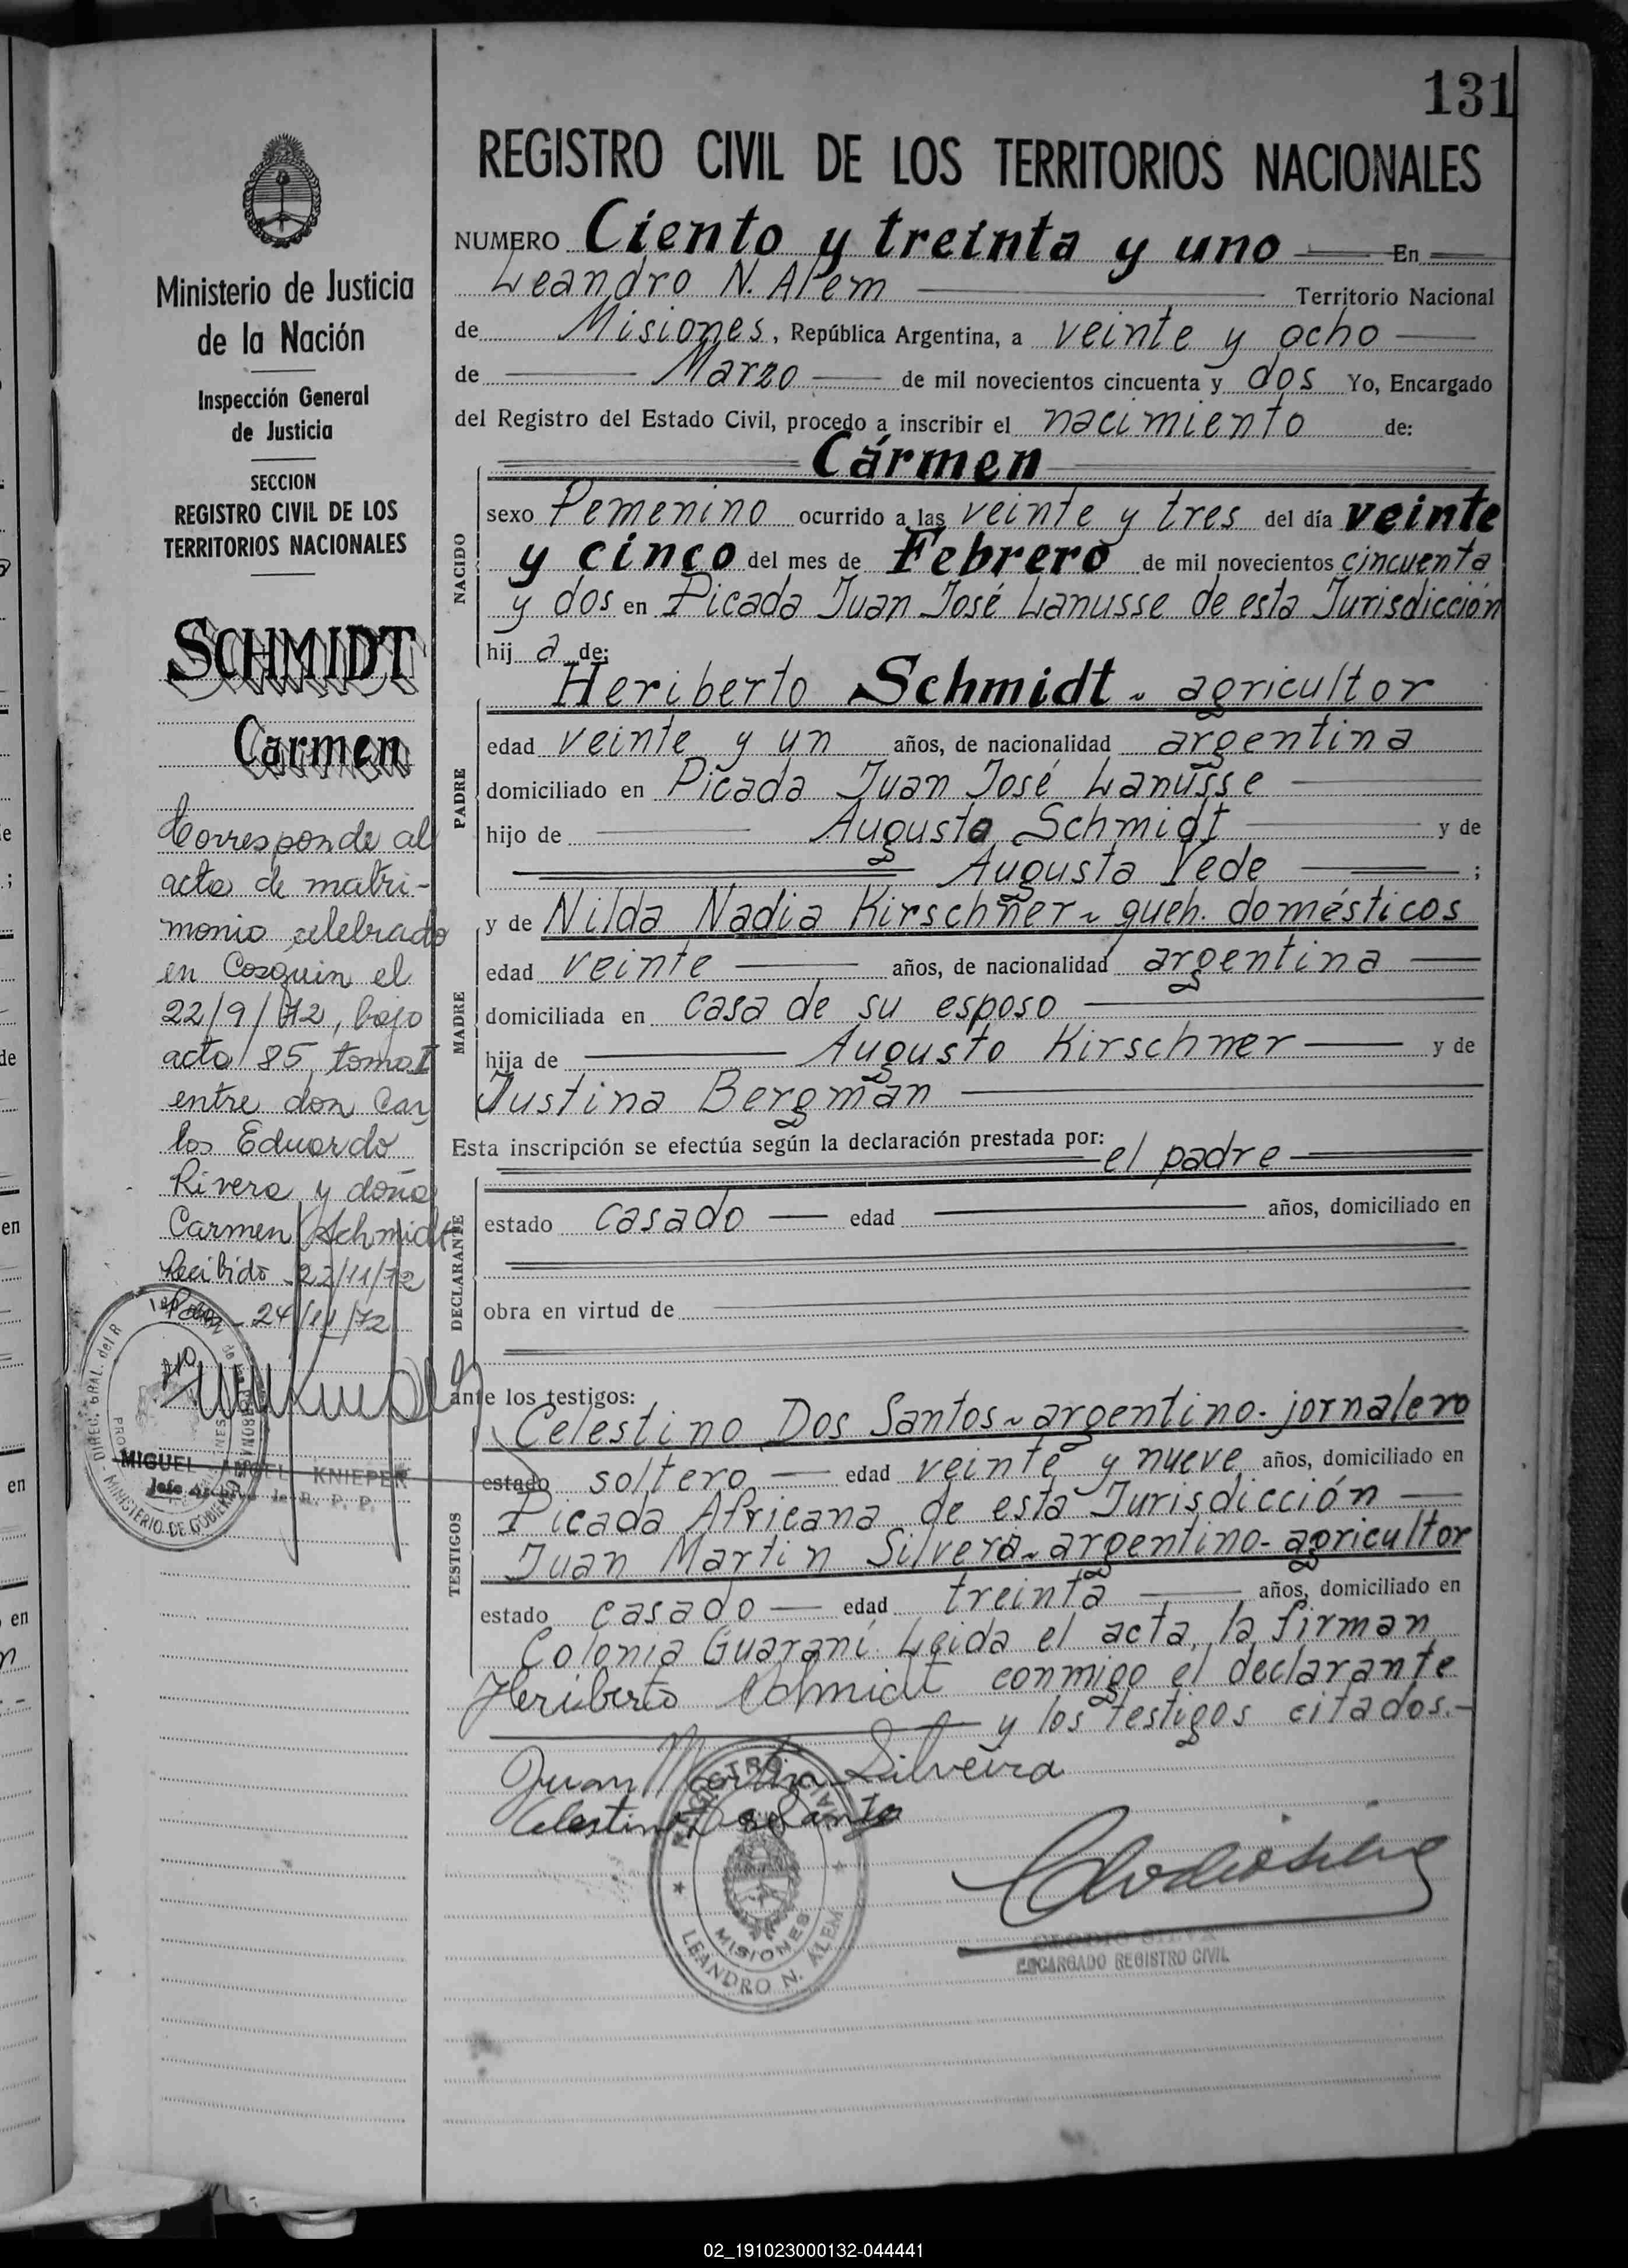 131
REGISTRO CIVIL DE LOS TERRITORIOS NACIONALES
NUMERO Ciento y treinta y uno En
Leandro N. Alem Territorio Nacional
de Misiones, República Argentina, a veinte y ocho
de Marzo de mil novecientos cincuenta y dos Yo, Encargado
del Registro del Estado Civil, procedo a inscribir el nacimiento de:
Cármen
NACIDO
sexo Femenino ocurrido a las veinte y tres del día veinte
y cinco del mes de Febrero de mil novecientos cincuenta
y dos en Picada Juan José Lanusse de esta Jurisdicción
hij a de:
PADRE
Heriberto Schmidt ~ agricultor
edad veinte y un años, de nacionalidad argentina
domiciliado en Picada Juan José Lanusse
hijo de Augusto Schmidt y de
Augusta Vede ;
MADRE
y de Nilda Nadia Kirschner ~ queh. domésticos
edad veinte años, de nacionalidad argentina
domiciliada en casa de su esposo
hija de Augusto Kirschner y de
Justina Bergman
Esta inscripción se efectúa según la declaración prestada por: el padre
DECLARANTE
estado casado edad años, domiciliado en
obra en virtud de
ante los testigos:
TESTIGOS
Celestino Dos Santos ~ argentino - jornalero
estado soltero edad veinte y nueve años, domiciliado en
Picada Africana de esta Jurisdicción
Juan Martin Silvera ~ argentino - agricultor
estado casado edad treinta años, domiciliado en
Colonia Guaraní. Leida el acta, la firman
Heriberto Schmidt conmigo el declarante
y los testigos citados.-
Juan Martin Silveira
Celestino Dos Santos
REGISTRO CIVIL
MISIONES
LEANDRO N. ALEM
CLODIO SILVA
ENCARGADO REGISTRO CIVIL
Ministerio de Justicia
de la Nación
Inspección General
de Justicia
SECCION
REGISTRO CIVIL DE LOS
TERRITORIOS NACIONALES
SCHMIDT
Carmen
Corresponde al
acta de matri-
monio celebrado
en Cosquin el
22/9/72, bajo
acta 85, tomo I
entre don Car
los Eduardo
Rivera y doña
Carmen Schmidt
Recibido 22/11/72
24/11/72
DIREC. GRAL. del R
MINISTERIO DE GOBIERNO
MIGUEL ANGEL KNIEPER
02_191023000132-044441